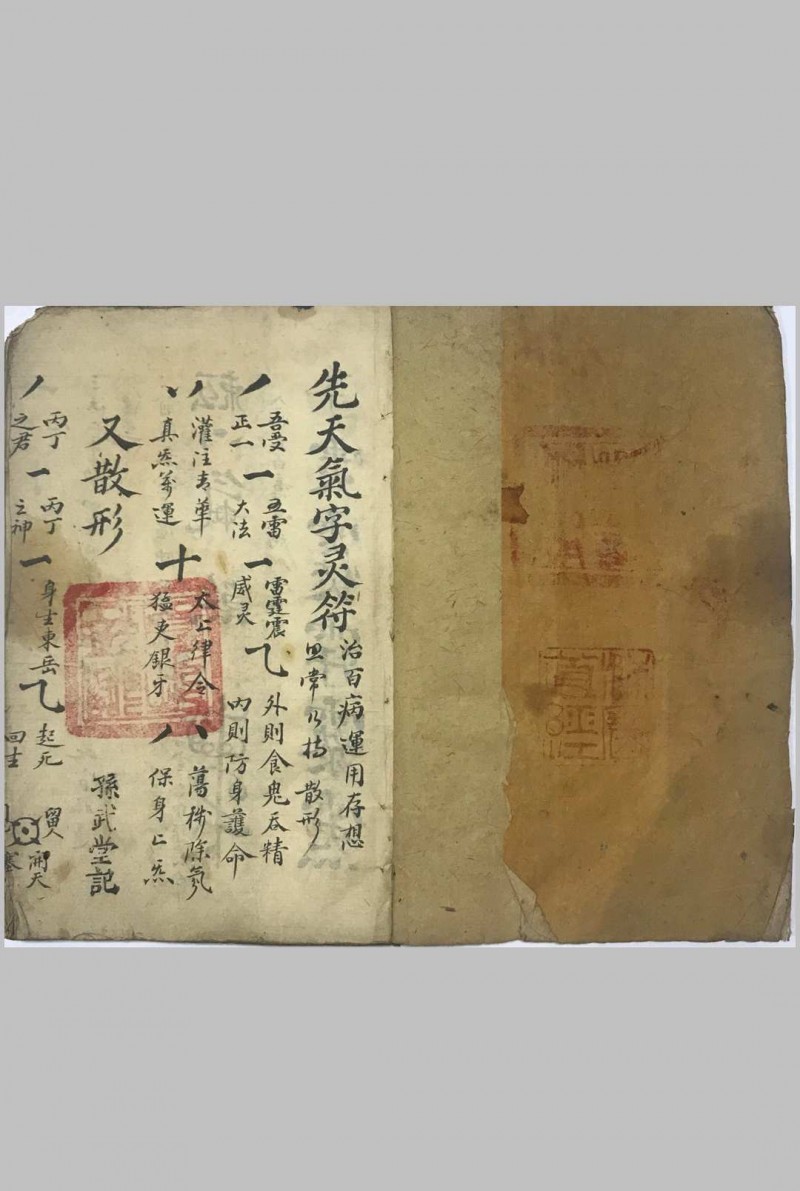 先天氣字灵符
治百病運用存想
常 散形
丿
吾受
正一
一
五雷
大法
一
雷霆震
威灵
乙
外則食鬼吞精
內則防身護命
丷
灌注青華
真炁萬運
十
太上律令
猛吏銀牙
八
蕩穢除氛
保身上炁
又散形
孫武堂記
丿
丙丁
之君
一
丙丁
之神
一
身生東岳
乙
起死
回生
留人
開天